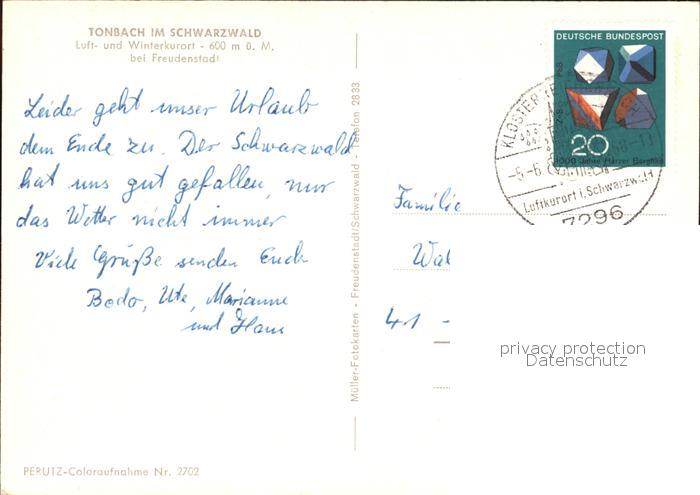 TONBACH IM SCHWARZWALD
Luft- und Winterkurort - 600 m ü. M.
bei Freudenstadt
Leider geht unser Urlaub
dem Ende zu. Der Schwarzwald
hat uns gut gefallen, nur
das Wetter nicht immer
Viele Grüße senden Euch
Bodo, Ute, Marianne
und Hans
PERUTZ-Coloraufnahme Nr. 2702
Müller-Fotokarten - Freudenstadt/Schwarzwald - Telefon 2833
DEUTSCHE BUNDESPOST
20
1000 Jahre Harzer Bergbau
KLOSTER
Luftkurort i. Schwarzwald
7296
Familie
41 -
privacy protection
Datenschutz